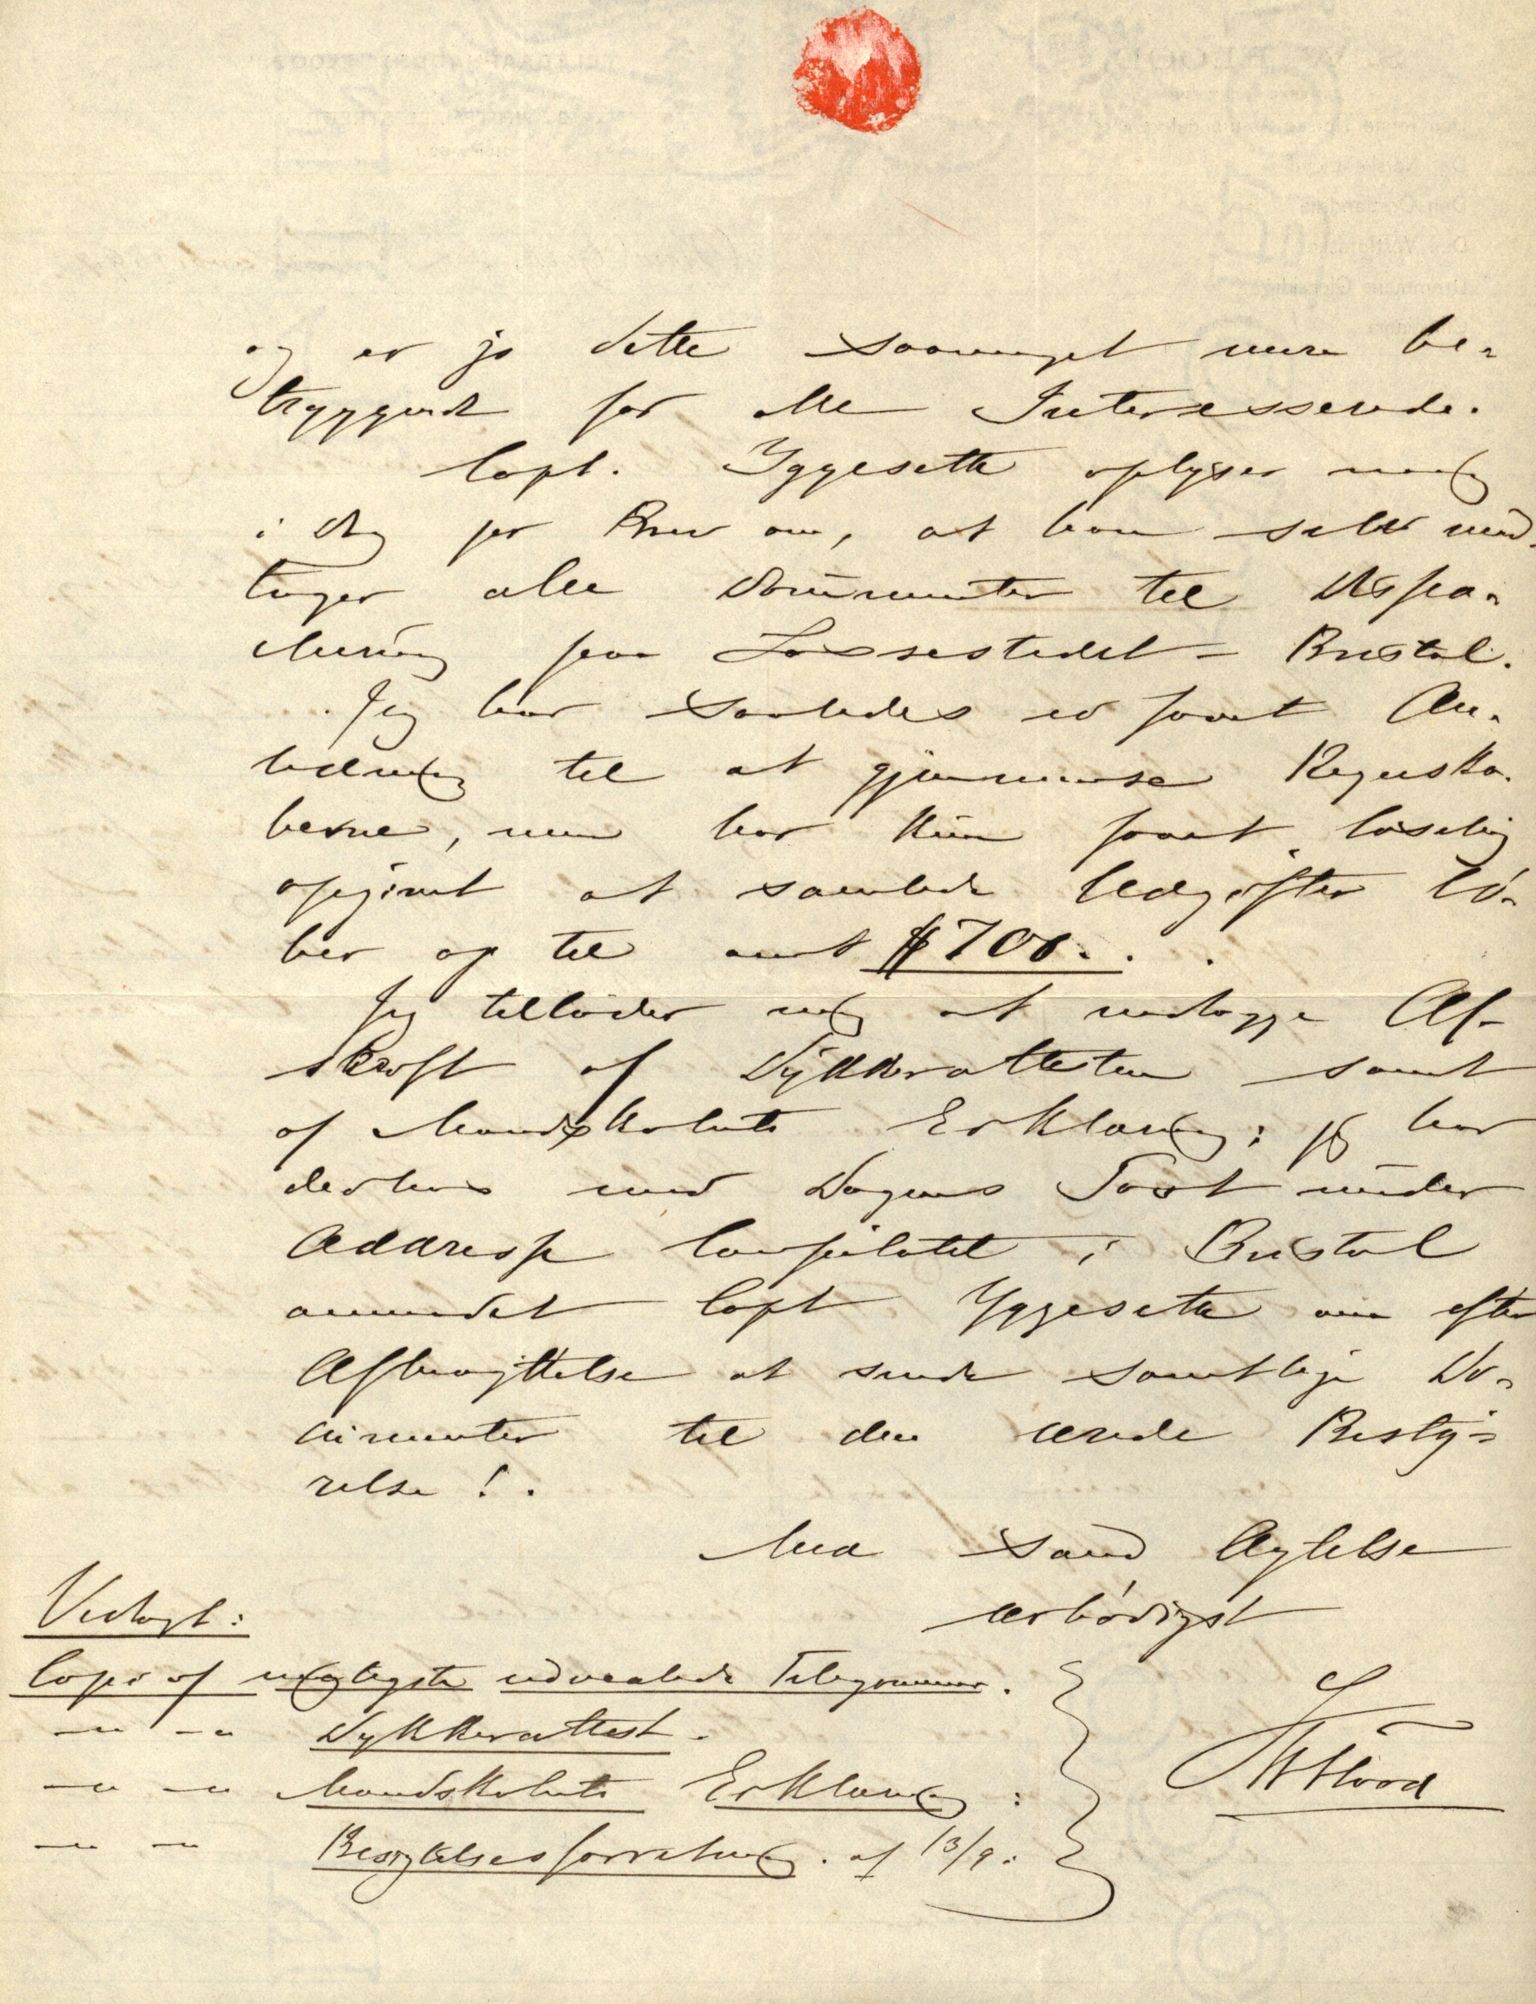 og er jo dette saameget mere be-
tryggende for alle Interesserede.
Capt. Yggeseth oplyser mig
i dag per Brev om, at han selv med-
tager alle Documenter til Dispa-
chering paa Lossestedet - Bristol.
Jeg har saaledes ei faaet An-
ledning til at gjennemse Regnska-
berne, men har kun faaet løselig
opgivet at samlede Udgifter lø-
ber op til omt $700. . .
Jeg tillader mig at vedlægge Af-
skrift af Dykkerattesten samt
af Mandskabets Erklæring; jeg har
derhos med Dagens Post under
Addresse Consulatet i Bristol
anmodet Capt Yggeseth om efter
Afbenyttelse at sende samtlige Do-
cumenter til den ærede Besty-
relse!.
Med sand Agtelse
ærbødigst
Vedlagt:
Copi af vigtigste udvexlede Telegrammer.
-"- -"- Dykkerattest.
-"- -"- Mandskabets Erklæring:
-"- -"- Besigtelsesforretning. af 13/9.
Flood